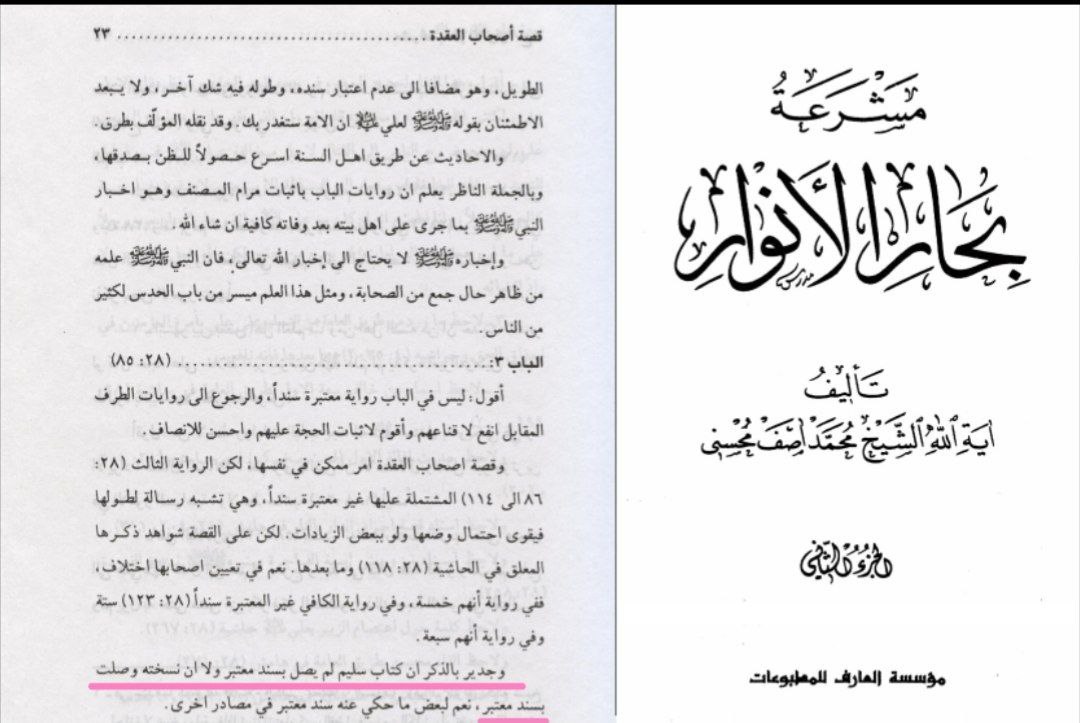 قصة أصحاب العقدة ........................................ ٢٣
الطويل، وهو مضافا الى عدم اعتبار سنده، وطوله فيه شك آخر، ولا يبعد
الاطمئنان بقوله ﷺ لعلي ﵇ ان الامة ستغدر بك. وقد نقله المؤلّف بطرق.
والاحاديث عن طريق اهل السنة اسرع حصولاً للظن بصدقها،
وبالجملة الناظر يعلم ان روايات الباب باثبات مرام المصنف وهو اخبار
النبي ﷺ بما جرى على اهل بيته بعد وفاته كافية ان شاء الله.
وإخباره ﷺ لا يحتاج الى إخبار الله تعالى، فان النبي ﷺ علمه
من ظاهر حال جمع من الصحابة، ومثل هذا العلم ميسر من باب الحدس لكثير
من الناس.
الباب ٣: ........................................ (٢٨: ٨٥)
أقول: ليس في الباب رواية معتبرة سنداً، والرجوع الى روايات الطرف
المقابل انفع لاقناعهم وأقوم لاثبات الحجة عليهم واحسن للانصاف.
وقصة اصحاب العقدة امر ممكن في نفسها، لكن الرواية الثالث (٢٨:
٨٦ الى ١١٤) المشتملة عليها غير معتبرة سنداً، وهي تشبه رسالة لطولها
فيقوى احتمال وضعها ولو ببعض الزيادات. لكن على القصة شواهد ذكرها
المعلق في الحاشية (٢٨: ١١٨) وما بعدها. نعم في تعيين اصحابها اختلاف،
ففي رواية أنهم خمسة، وفي رواية الكافي غير المعتبرة سنداً (٢٨: ١٢٣) ستة
وفي رواية أنهم سبعة.
وجدير بالذكر ان كتاب سليم لم يصل بسند معتبر ولا ان نسخته وصلت
بسند معتبر، نعم لبعض ما حكي عنه سند معتبر في مصادر اخرى.
مَشْرَعَةُ
بِحَارِ الأَنْوَارِ
تَأليفُ
آيَةِ اللهِ الشَّيْخ مُحَمَّد آصَف مُحْسِنِي
الجُزْءُ الثَّانِي
مؤسسة العارف للمطبوعات